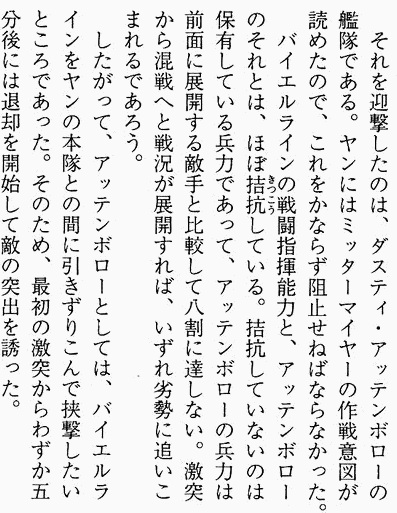 それを迎撃したのは、ダスティ・アッテンボローの
艦隊である。ヤンにはミッターマイヤーの作戦意図が
読めたので、これをかならず阻止せねばならなかった。
バイエルラインの戦闘指揮能力と、アッテンボロー
のそれとは、ほぼ拮抗している。拮抗していないのは
きっこう
保有している兵力であって、アッテンボローの兵力は
前面に展開する敵手と比較して八割に達しない。激突
から混戦へと戦況が展開すれば、いずれ劣勢に追いこ
まれるであろう。
したがって、アッテンボローとしては、バイエルラ
インをヤンの本隊との間に引きずりこんで挟撃したい
ところであった。そのため、最初の激突からわずか五
分後には退却を開始して敵の突出を誘った。